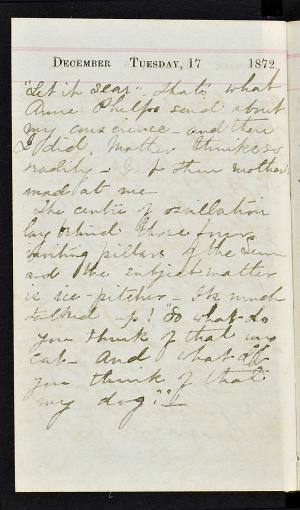 December Tuesday, 17 1872.
"Let it sear". That's what
Anne Phelps said about
my conscience - and then
I did. Matter thinks so
readily - I then mother
mad at me
The centre of oscillation
lay behind those four
writing pillars of the
and the subject-matter
is ice-pitcher - It's much
talked up! "So what do
you think of that my
cat - And what do
you think of that
my dog?"